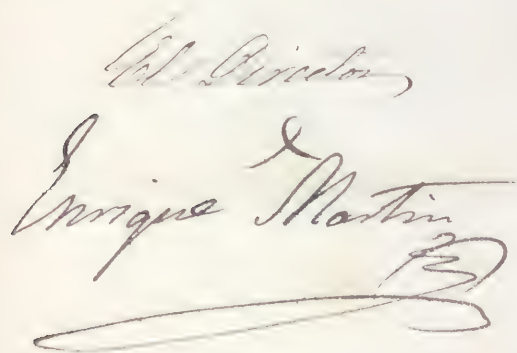 El Director
Enrique Martin